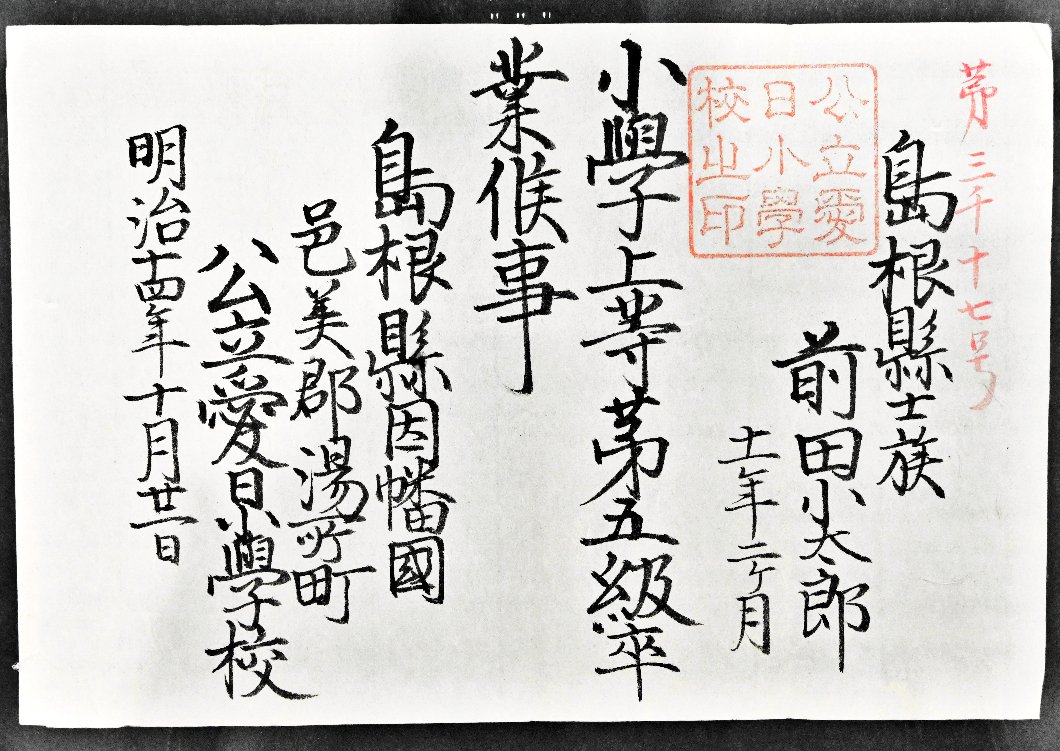 第三千十七号
島根縣士族
前田小太郎
十一年二ケ月
公立愛
日小學
校之印
小學上等第五級卒
業候事
島根縣因幡國
邑美郡湯所町
公立愛日小學校
明治十四年十月廿一日